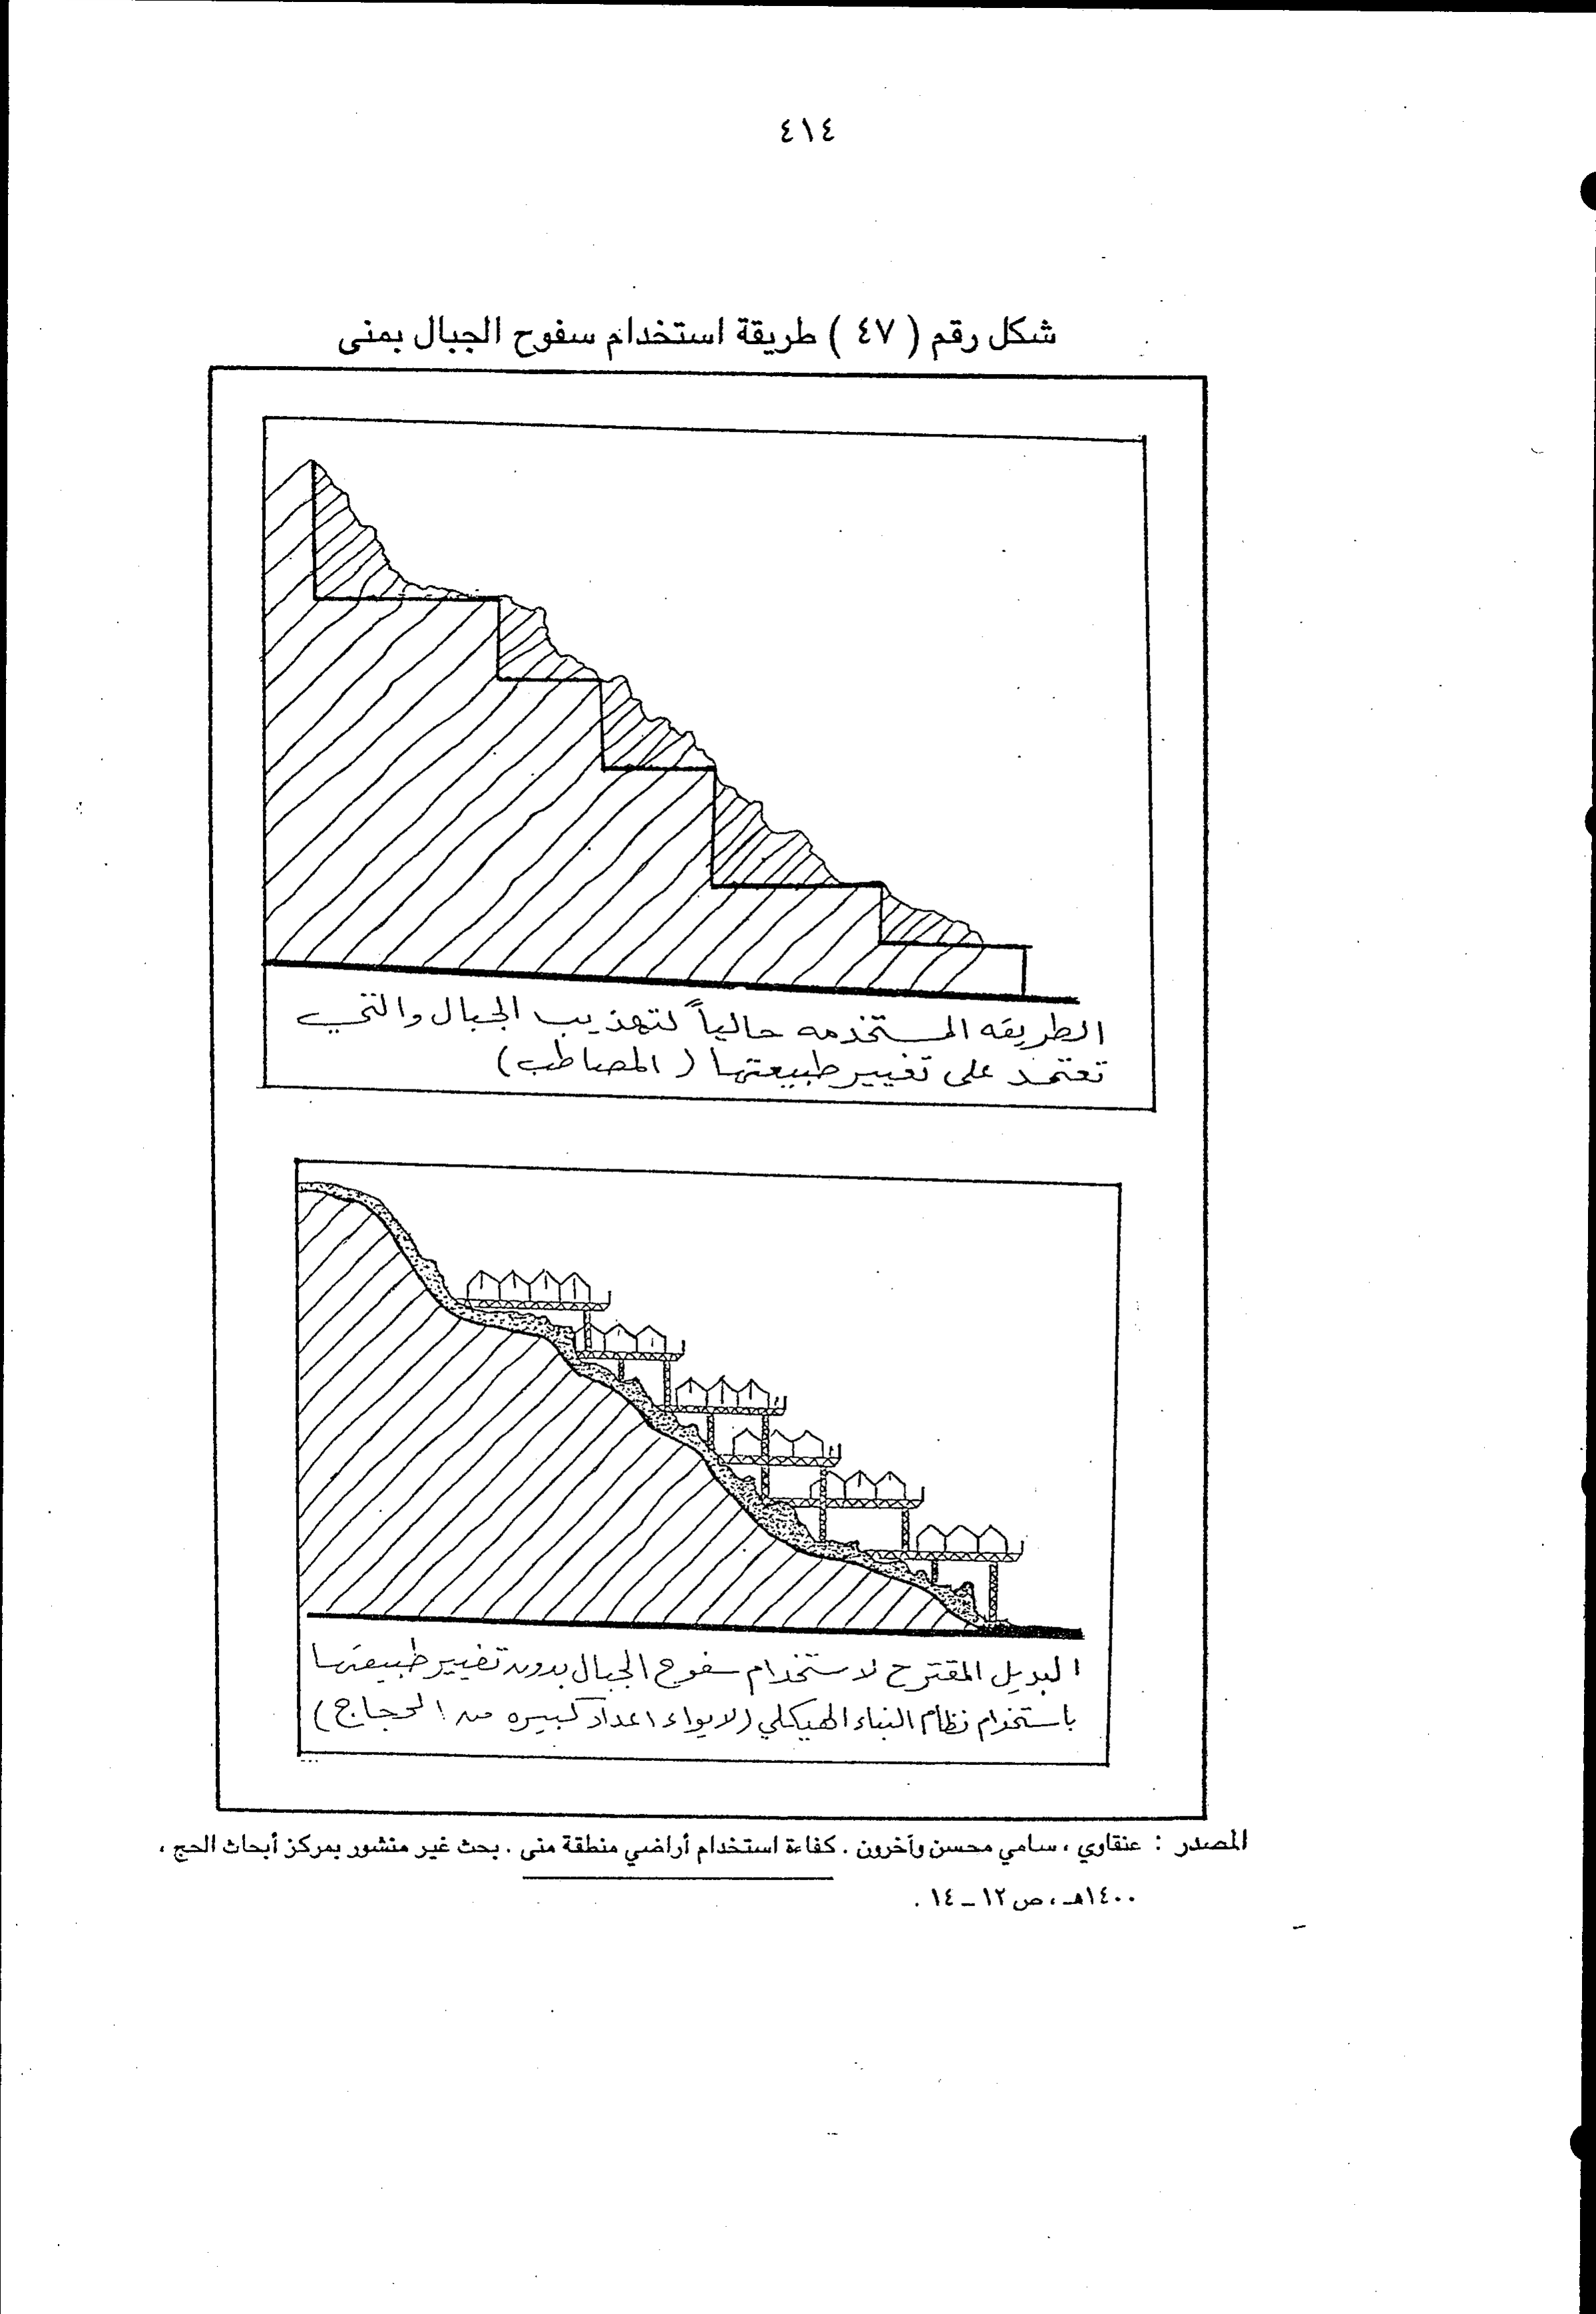 ٤١٤
شكل رقم ( ٤٧ ) طريقة استخدام سفوح الجبال بمنى
الطريقه المستخدمه حالياً لتهذيب الجبال والتي
تعتمد على تغيير طبيعتها ( المصاطب )
البديل المقترح لاستخدام سفوح الجبال بدون تغيير طبيعتها
باستخدام نظام البناء الهيكلي ( لايواء اعداد كبيره من الحجاج )
المصدر : عنقاوي ، سامي محسن وآخرون . كفاءة استخدام أراضي منطقة منى . بحث غير منشور بمركز أبحاث الحج ،
١٤٠٠هـ ، ص ١٢ ــ ١٤ .